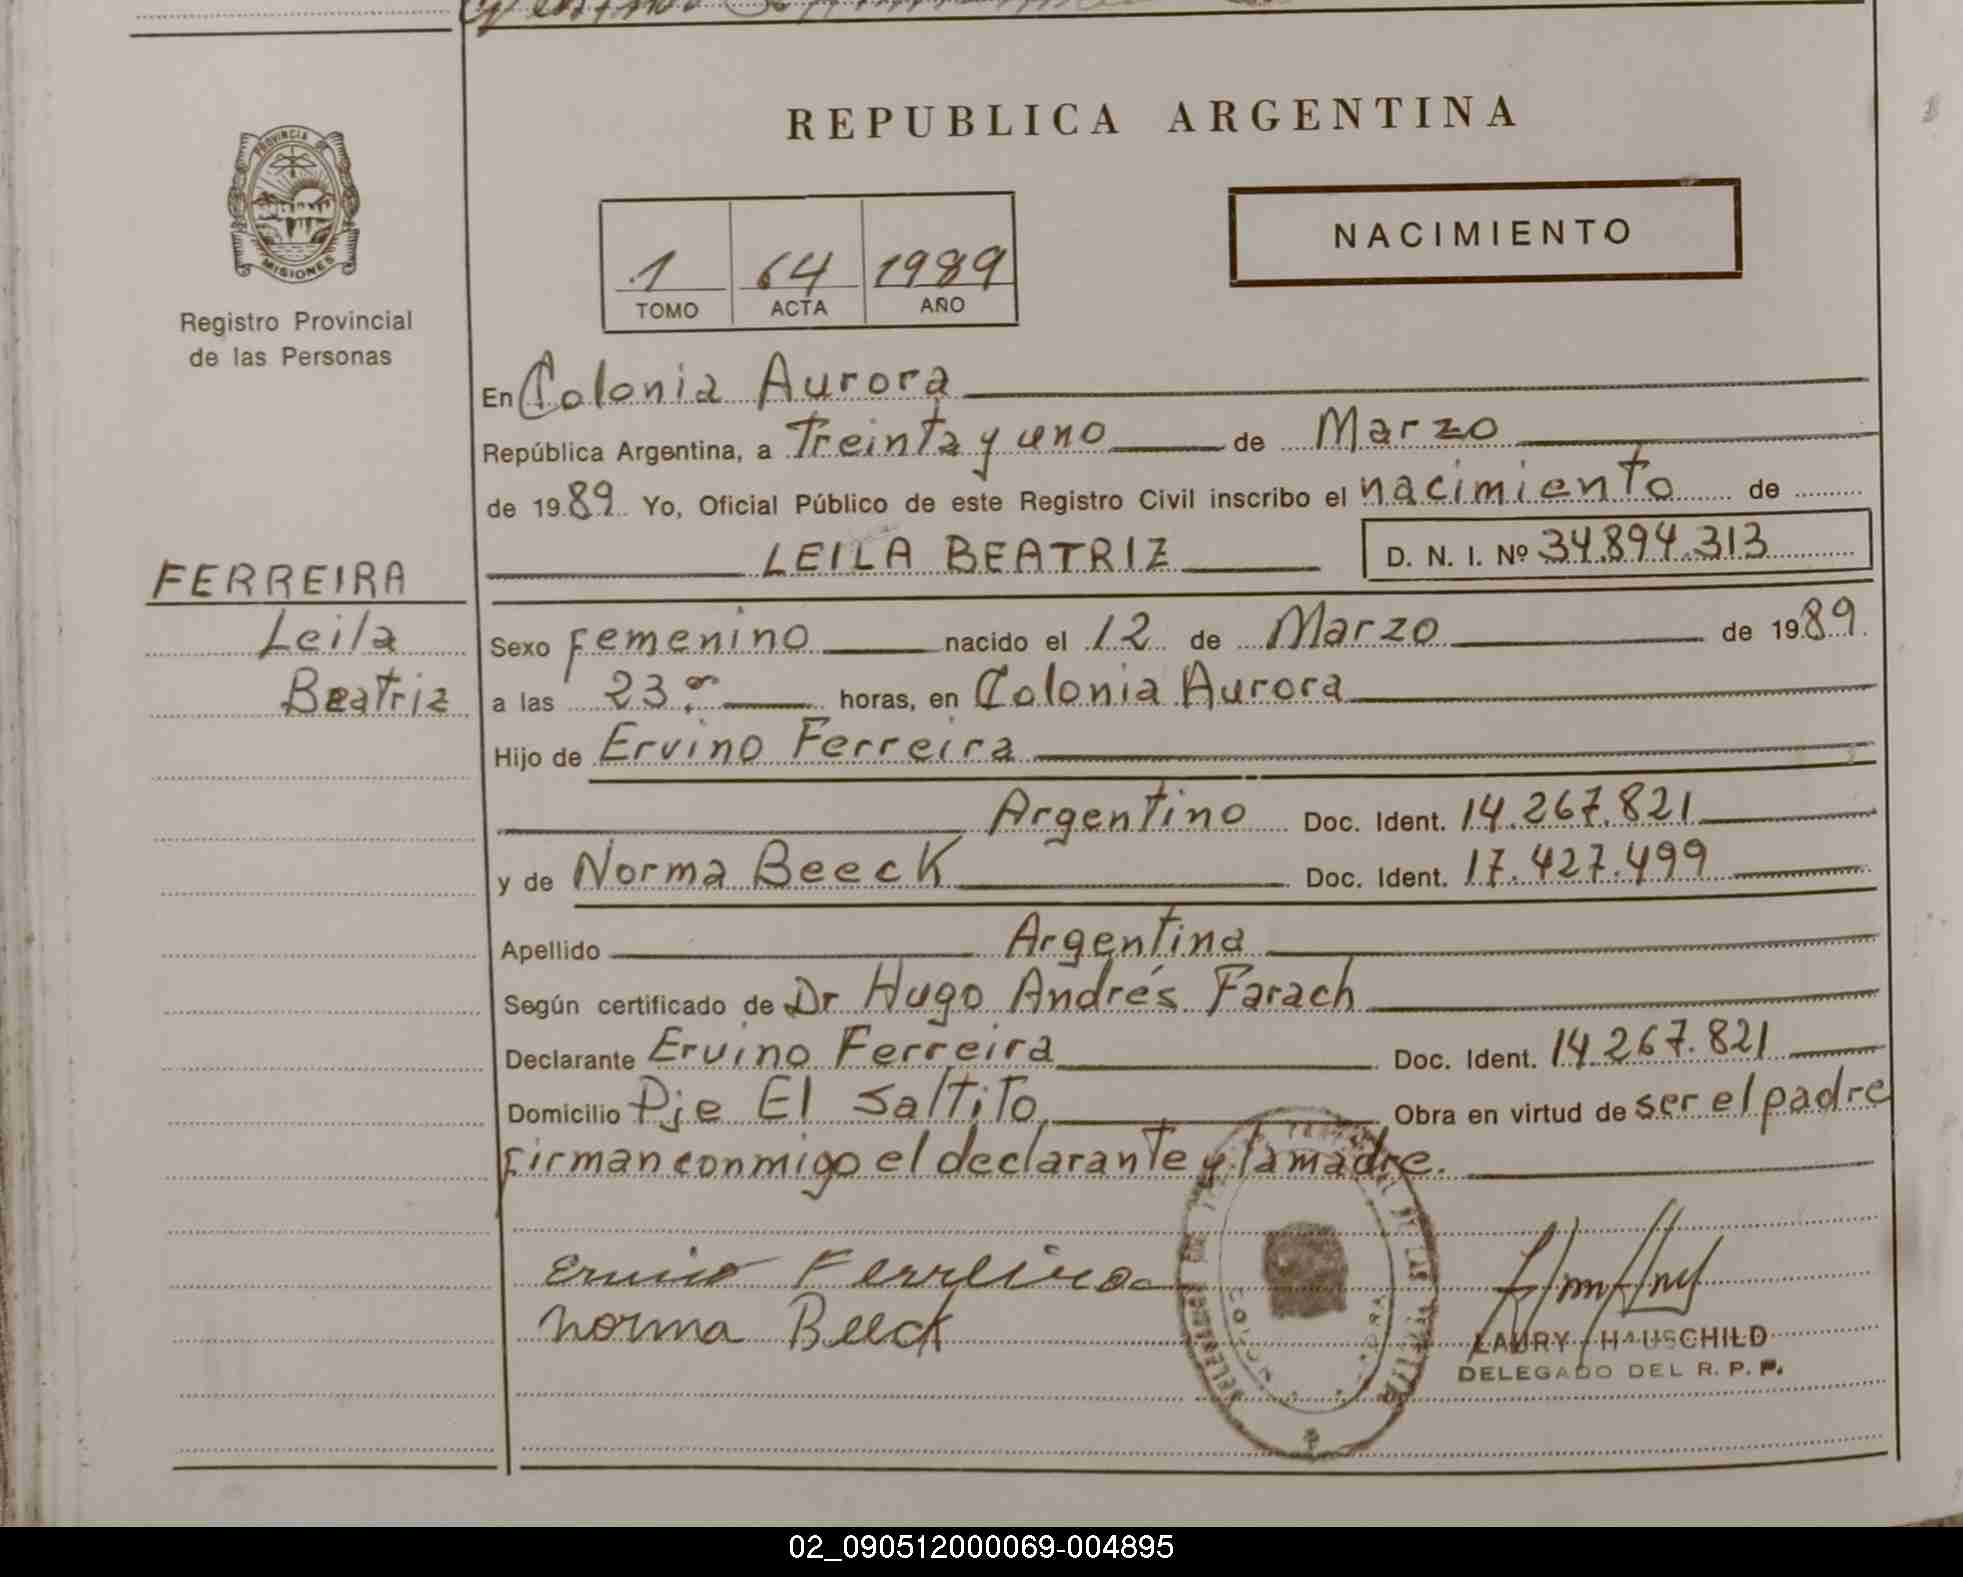 REPUBLICA ARGENTINA
PROVINCIA DE
MISIONES
Registro Provincial
de las Personas
NACIMIENTO
1 64 1989
TOMO ACTA AÑO
En Colonia Aurora
República Argentina, a Treinta y uno de Marzo
de 1989 Yo, Oficial Público de este Registro Civil inscribo el nacimiento de
LEILA BEATRIZ D. N. I. Nº 34.894.313
FERREIRA
Leila
Beatriz
Sexo Femenino nacido el 12 de Marzo de 1989
a las 23:00 horas, en Colonia Aurora
Hijo de Ervino Ferreira
Argentino Doc. Ident. 14.267.821
y de Norma Beeck Doc. Ident. 17.427.499
Apellido Argentina
Según certificado de Dr Hugo Andrés Farach
Declarante Ervino Ferreira Doc. Ident. 14.267.821
Domicilio Pje El Saltito Obra en virtud de ser el padre
Firman conmigo el declarante y la madre.
Ervino Ferreira
Norma Beeck
LAURY HAUSCHILD
DELEGADO DEL R. P. P.
02_090512000069-004895